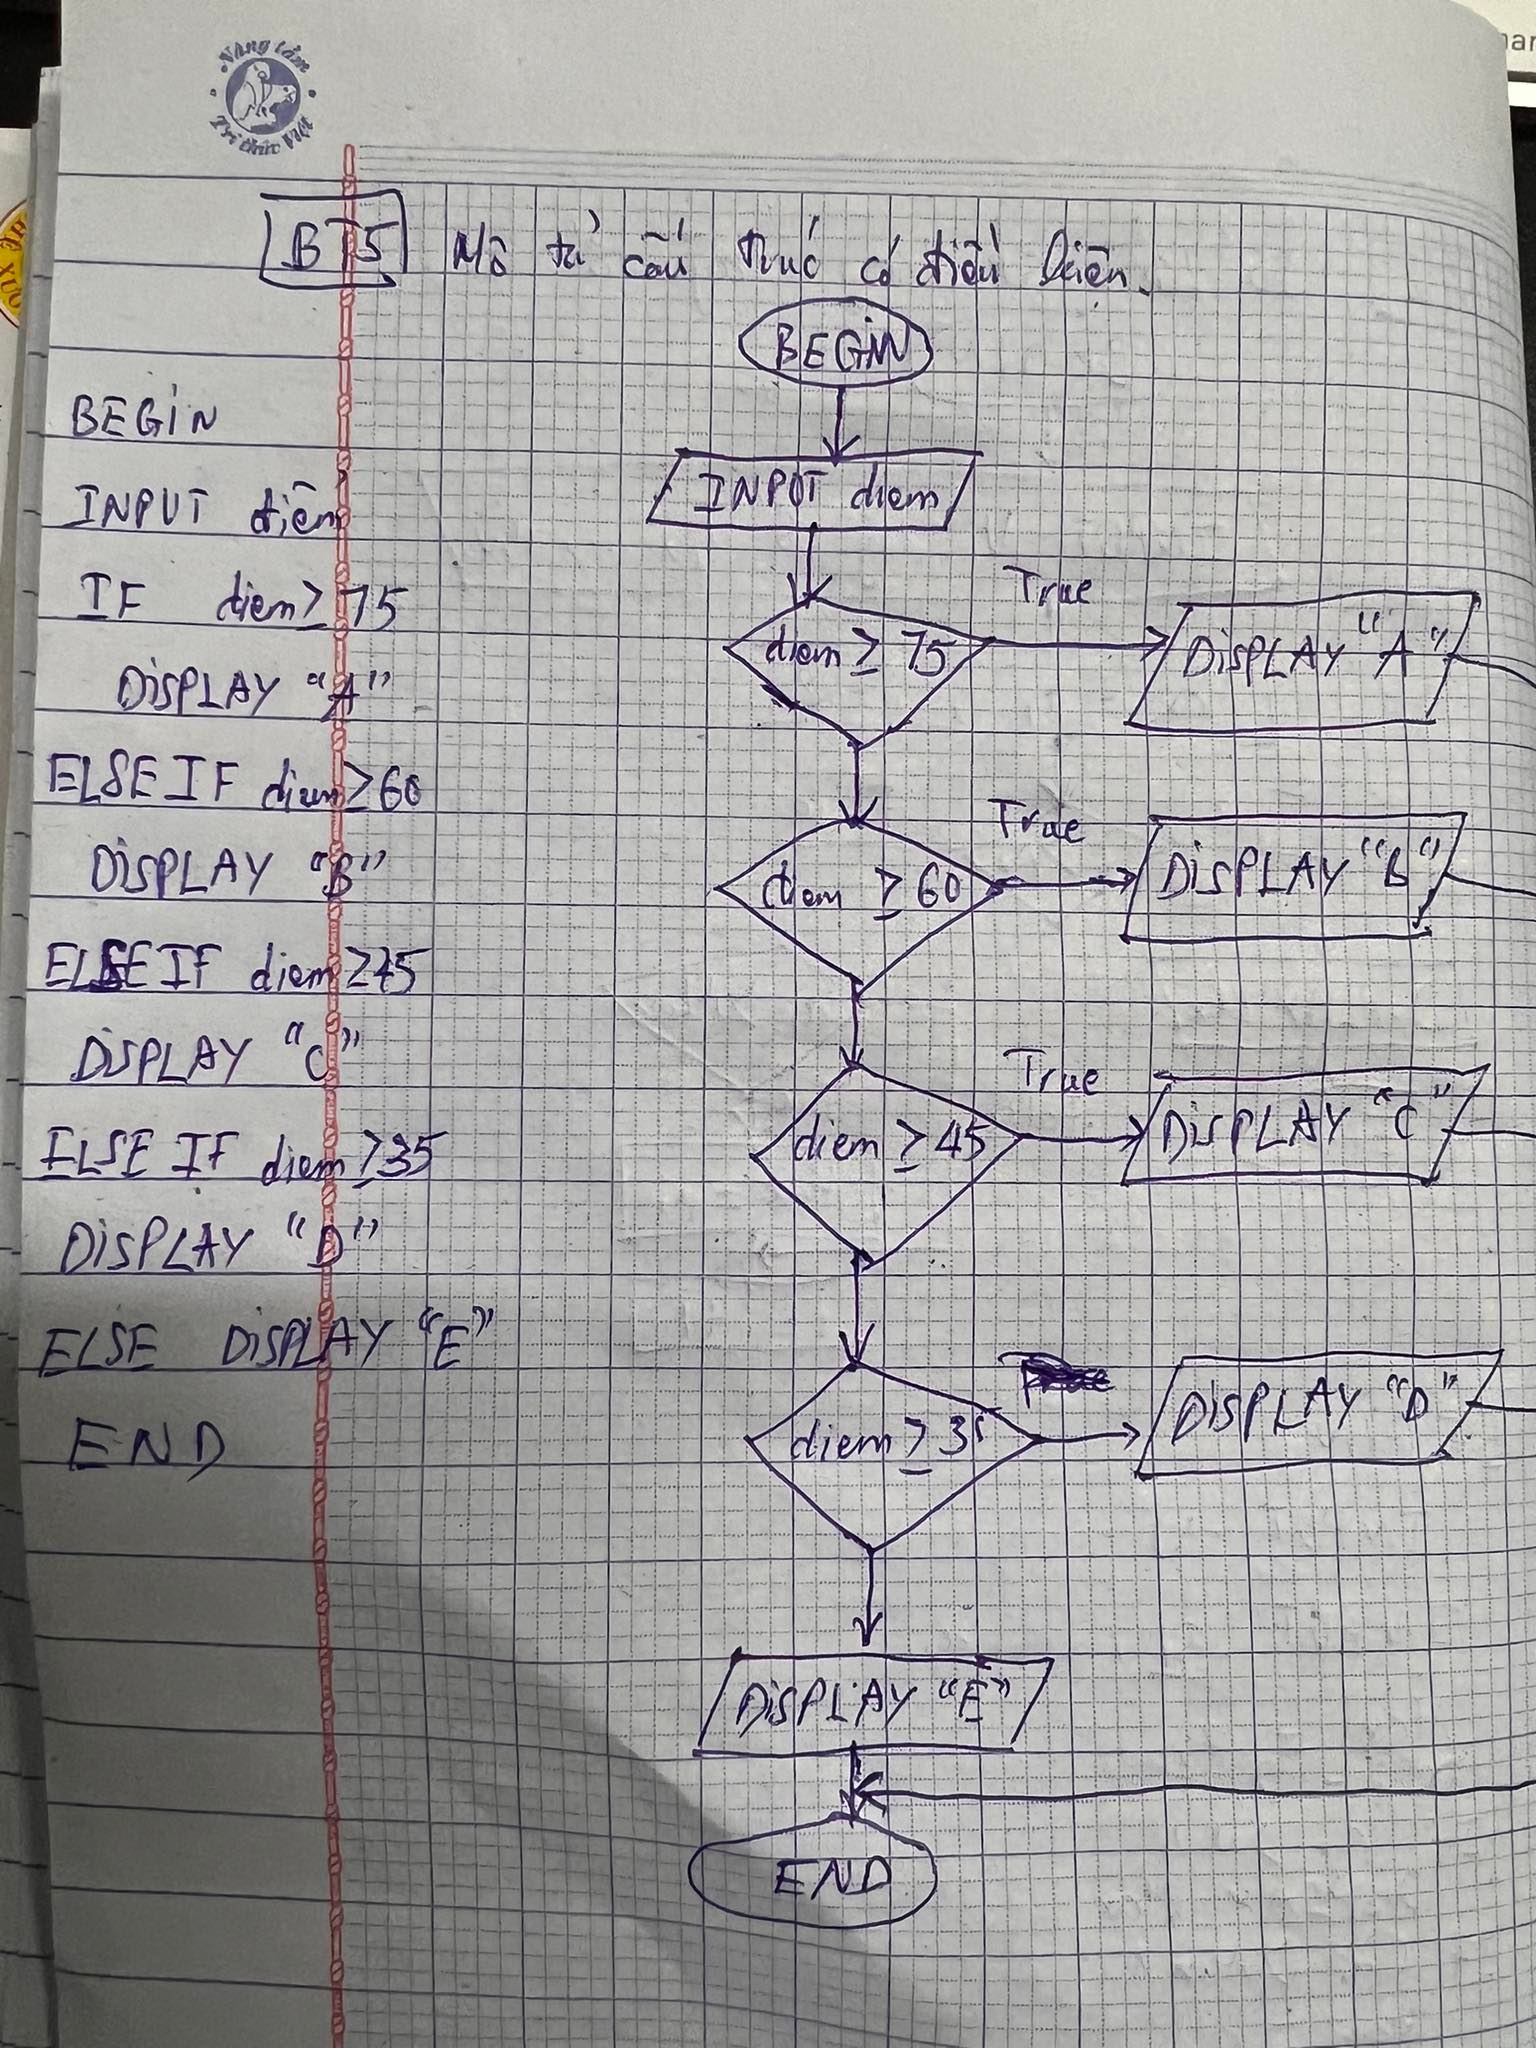 Nâng tầm
Tri thức Việt
BT5 Mô tả cấu trúc có điều kiện.
BEGIN
INPUT điểm
IF diem ≥ 75
DISPLAY "A"
ELSE IF diem ≥ 60
DISPLAY "B"
ELSE IF diem ≥ 45
DISPLAY "C"
ELSE IF diem ≥ 35
DISPLAY "D"
ELSE DISPLAY "E"
END
BEGIN
INPUT diem
diem ≥ 75
True
DISPLAY "A"
diem ≥ 60
True
DISPLAY "B"
diem ≥ 45
True
DISPLAY "C"
diem ≥ 35
DISPLAY "D"
DISPLAY "E"
END